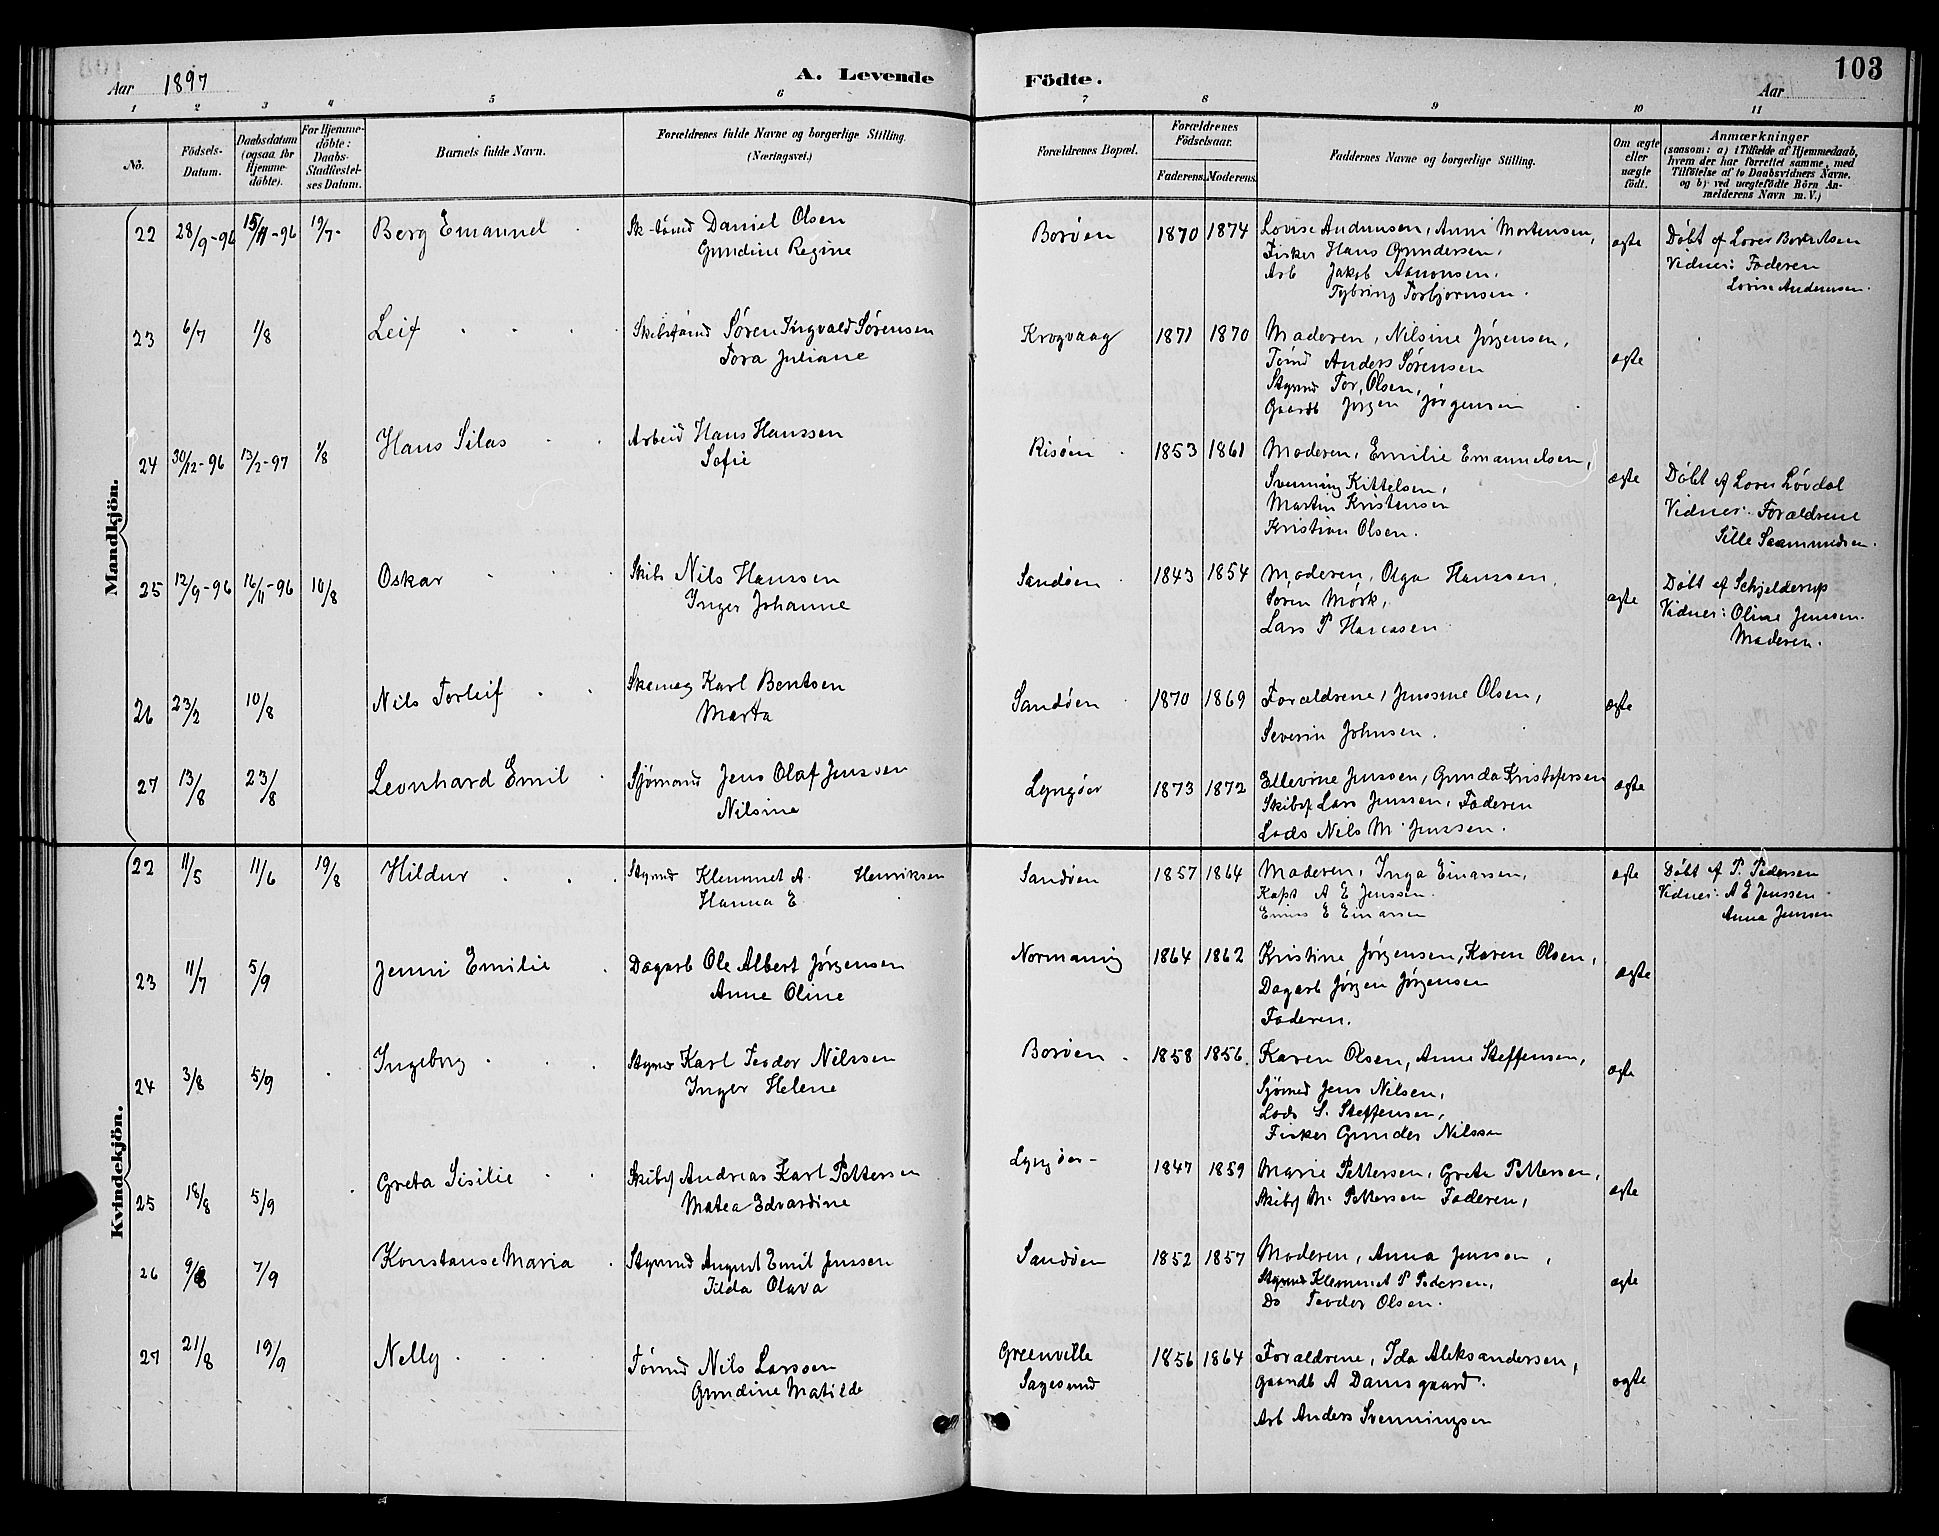 Aar 1897 A. Levende
Födte. 103
Aar
1 2 3 4 5 6 7 8 9 10 11
No.
Födsels-Datum.
Daabsdatum (ogsaa for Hjemmedöbte).
For Hjemmedöbte: Daabs-Stadfestelses Datum.
Barnets fulde Navn.
Forældrenes fulde Navne og borgerlige Stilling. (Næringsvei.)
Forældrenes Bopæl.
Forældrenes Födselsaar.
Faderens. Moderens.
Faddernes Navne og borgerlige Stilling.
Om ægte eller uægte födt.
Anmærkninger
(saasom: a) i Tilfælde af Hjemmedaab, hvem der har forrettet samme, med Tilföielse af to Daabsvidners Navne, og b) ved uægtefödte Börn Anmelderens Navn m. V.)
Mandkjön.
22 28/9-96 15/11-96 19/7- Berg Emanuel Sk-tømd Daniel Olsen
Gundine Regine
Borøen 1870 1874 Lovise Andersen, Anni Mortensen,
Fisker Hans Gundersen,
Arb Jakob Aanonsen,
Tybring Torbjørnsen.
ægte
Døbt af Lærer Berntsen
Vidner: Faderen
Lovise Andersen.
23 6/7 1/8 Leif Skibstømd Søren Ingvald Sørensen
Tora Juliane
Krogvaag 1871 1870 Moderen, Nilsine Jørgensen,
Tømd Anders Sørensen
Stymd Tor Olsen,
Gaardb Jørgen Jørgensen
ægte
24 30/12-96 13/2-97 1/8 Hans Silas Arbeid Hans Hanssen
Sofie
Risøen 1853 1861 Moderen, Emilie Emanuelsen,
Svenning Kittelsen,
Martin Kristensen
Kristian Olsen.
ægte
Døbt af Lærer Løvdal
Vidner: Forældrene
Sille Saamundsen.
25 12/9-96 16/11-96 10/8 Oskar Skibs Nils Hanssen
Inger Johanne
Sandøen 1843 1854 Moderen, Olga Hanssen,
Søren Mørk,
Lars P Hanssen
ægte
Døbt af Schjelderup
Vidner: Oline Jenssen.
Moderen.
26 23/2 10/8 Nils Torleif Skomag Karl Bentsen
Marta
Sandøen 1870 1869 Forældrene, Jenssine Olsen,
Severin Johnsen.
ægte
27 13/8 23/8 Leonhard Emil Sjømand Jens Olaf Jenssen
Nilsine
Lyngøer 1873 1872 Ellevine Jenssen, Gunda Kristofersen
Skibsf Lars Jenssen, Faderen
Lods Nils M. Jenssen.
ægte
Kvindekjön.
22 11/5 11/6 19/8 Hildur Stymd Klemmet A. Henriksen
Hanna E
Sandøen 1857 1864 Moderen, Inga Einarsen,
Kapt A E Jenssen.
E Einarsen
ægte
Døbt af P. Pedersen
Vidner: A E Jenssen
Anna Jensen
23 11/7 5/9 Jenni Emilie Dagarb Ole Albert Jørgensen
Anne Oline
1864 1862 Kristine Jørgensen, Karen Olsen,
Dagarb Jørgen Jørgensen
Faderen.
ægte
24 3/8 5/9 Ingeborg Stymd Karl Teodor Nilssen
Inger Helene
Borøen 1858 1856 Karen Olsen, Anne Steffensen,
Sjømd Jens Nilsen,
Lods S. Steffensen,
Fisker Gunder Nilssen
ægte
25 18/8 5/9 Greta Sisilie Skibsf Andreas Karl Pettersen
Matea Edvardine
Lyngøer 1847 1859 Marie Pettersen, Greta Pettersen,
Skibsf M. Pettersen Faderen,
ægte
26 9/8 7/9 Konstanse Maria Stymd August Emil Jenssen
Tilda Olava
Sandøen 1852 1857 Moderen, Anna Jenssen,
Stymd Klemmet P Pedersen,
Do Teodor Olsen.
ægte
27 21/8 19/9 Nelly Tømd Nils Larssen
Gundine Matilde
Greenville
Sagesund
1856 1864 Forældrene, Ida Aleksandersen,
Gaardb A Damsgaard.
Arb Anders Svenningsen
ægte